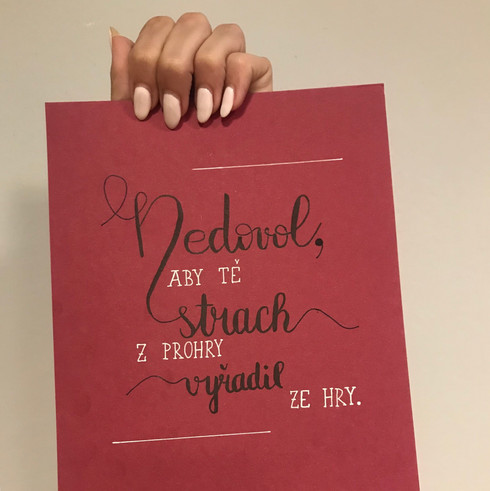 Nedovol,
ABY TĚ
strach
Z PROHRY
vyřadil
ZE HRY.